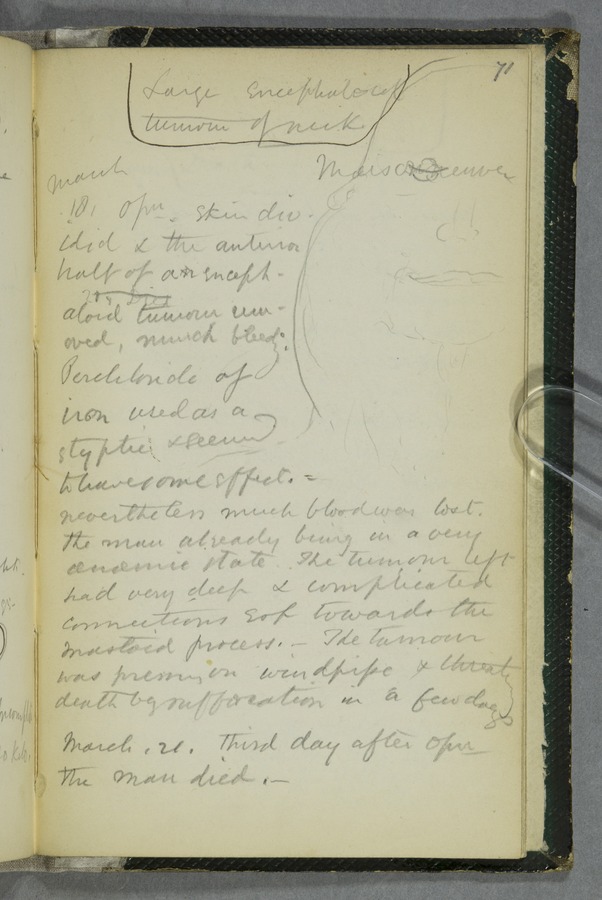 71
Large encephaloid
tumour of neck
Maisonneuve
March
18, opn. Skin div-
ided & the anterior
half of an enceph-
aloid tumour rem-
oved, much bleedg.
Perchloride of
iron used as a
styptic & seemed
to have some effect. =
nevertheless much blood was lost.
the man already being in a very
anaemic state. The tumour left
had very deep & complicated
connections esp towards the
mastoid process. — The tumour
was pressing on windpipe & threatg
death by suffocation in a few days
March . 21. Third day after opn
the man died. —